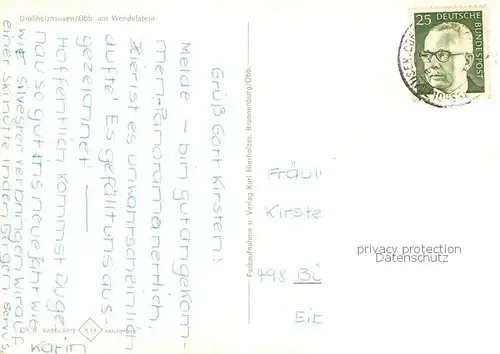 Großholzhausen/Obb. am Wendelstein
Grüß Gott Kirsten!
Melde – bin gut angekom-
men. Panorama herrlich.
Hier ist es unwahrscheinlich
dufte! Es gefällt uns aus-
gezeichnet!
Hoffentlich kommst Du ge-
nau so gut ins neue Jahr wie
wir. Silvester verbringen wir auf
einer Skihütte in den Bergen. Servus
Karin
Farbaufnahme u. Verlag Karl Nierholzer, Brannenburg/Obb.
25 DEUTSCHE
BUNDESPOST
Fräul
Kirste
498 Bü
privacy protection
Datenschutz